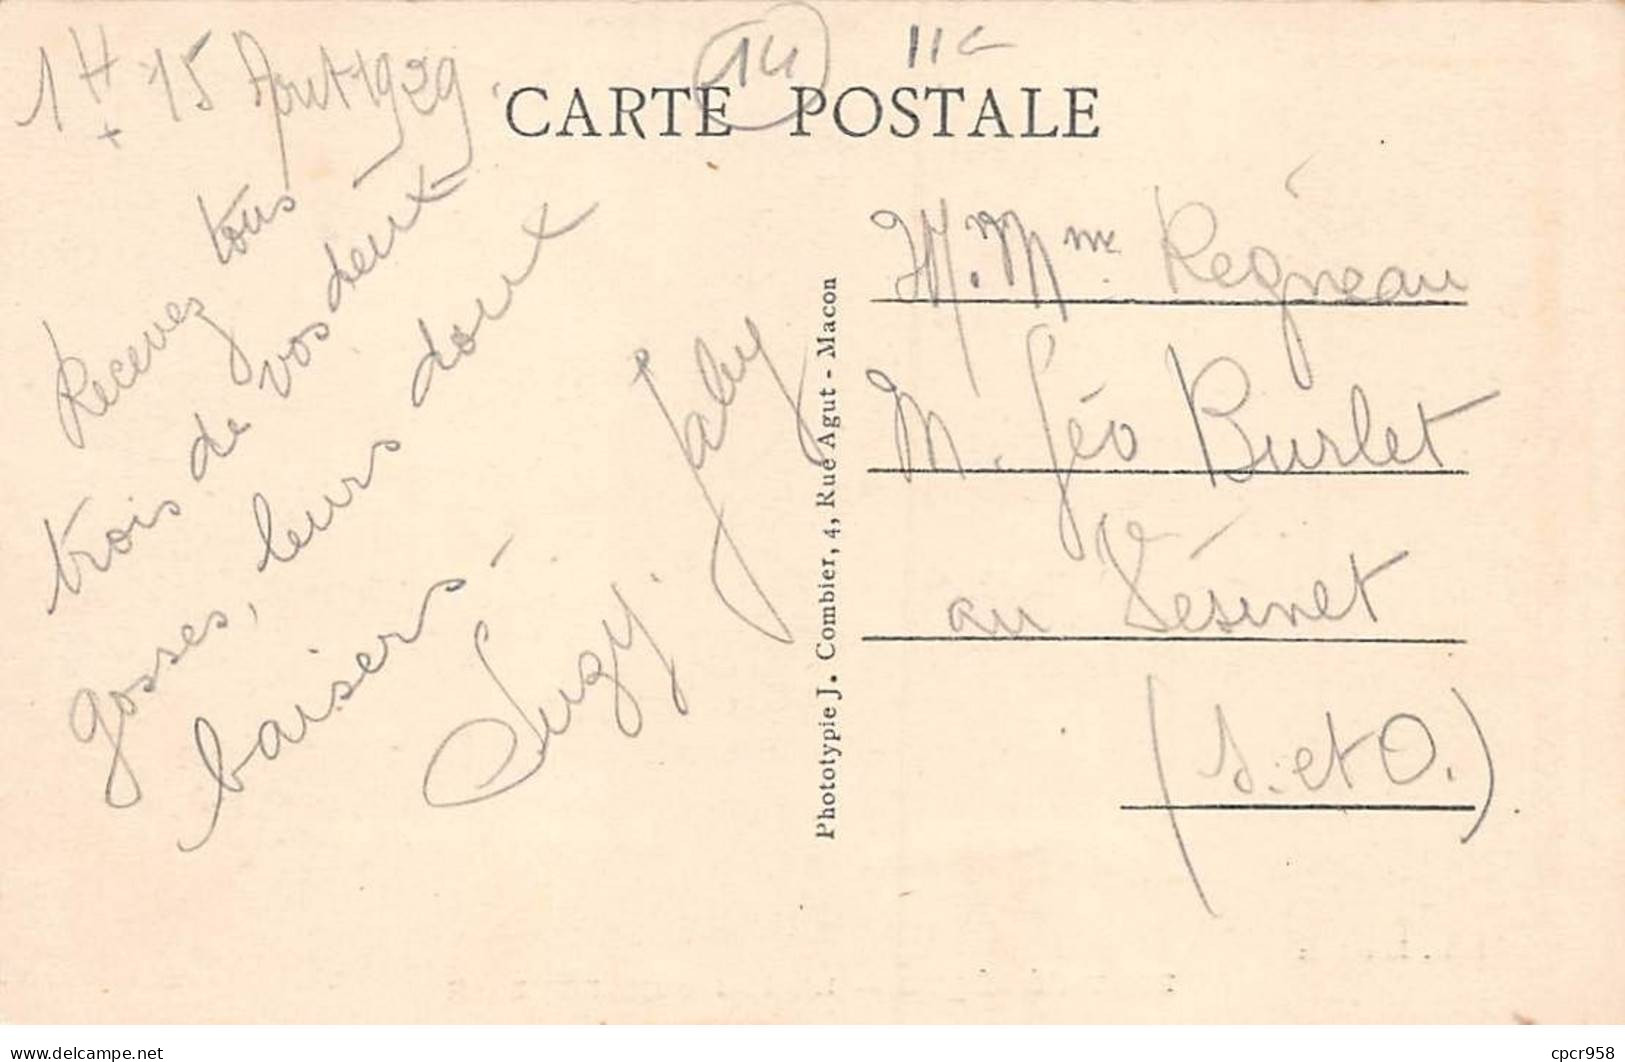 14 15 Août 1929
CARTE POSTALE
14
Recevez tous
trois de vos deux
gosses, leurs doux
baisers.
Suzy. Jaby
Phototypie J. Combier, 4, Rue Agut - Macon
M. Mme Régneau
M. Géo Burlet
au Vésinet
(S. et O.)
cpcr958